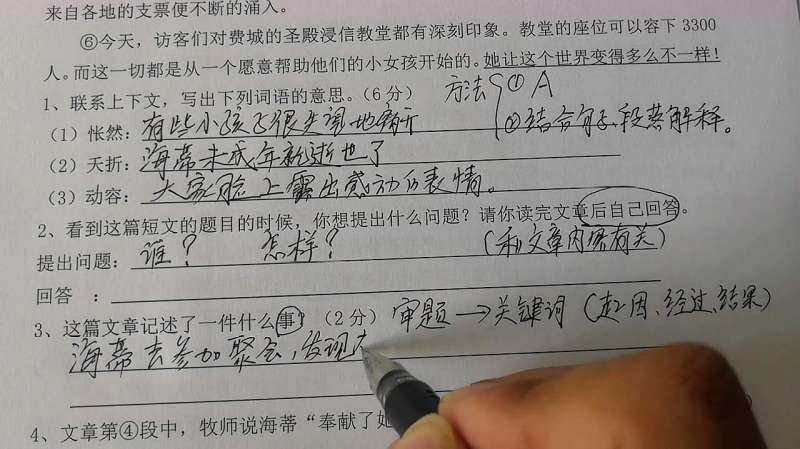 来自各地的支票便不断的涌入。
⑥今天，访客们对费城的圣殿浸信教堂都有深刻印象。教堂的座位可以容下 3300
人。而这一切都是从一个愿意帮助他们的小女孩开始的。她让这个世界变得多么不一样！
1、联系上下文，写出下列词语的意思。（6 分） 方法 ① A
（1）怅然：有些小孩子很失望地离开 ②结合句子、段落解释。
（2）夭折：海蒂未成年就逝世了
（3）动容：大家脸上露出感动的表情。
2、看到这篇短文的题目的时候，你想提出什么问题？请你读完文章后自己回答。
提出问题：谁？ 怎样？ （和文章内容有关）
回答 ：
3、这篇文章记述了一件什么事？（2 分） 审题→关键词（起因、经过、结果）
海蒂去参加聚会，发现
4、文章第④段中，牧师说海蒂“奉献了